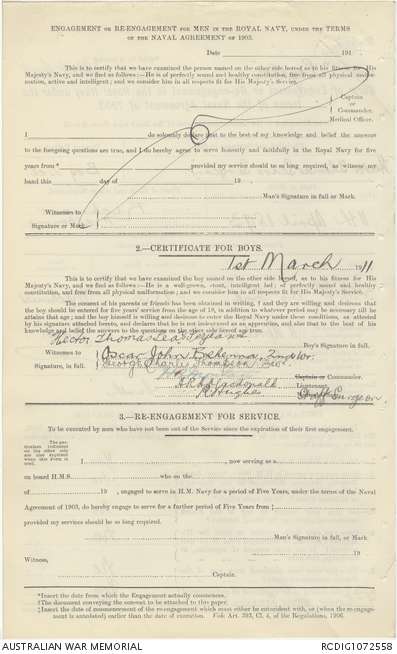 ENGAGEMENT OR RE-ENGAGEMENT FOR MEN IN THE ROYAL NAVY, UNDER THE TERMS
OF THE NAVAL AGREEMENT OF 1903.
Date 191
This is to certify that we have examined the person named on the other side hereof as to his fitness for His
Majesty's Navy, and we find as follows:—He is of perfectly sound and healthy constitution, free from all physical
active and intelligent; and we consider him in all respects fit for His Majesty's Service.
Captain
or
Commander.
Medical Officer.
I do solemnly declare that to the best of my knowledge and belief the answers
to the foregoing questions are true, and I do hereby agree to serve honestly and faithfully in the Royal Navy for five
years from* provided my service should be so long required, as witness my
hand this day of 19
Man's Signature in full or Mark.
Witnesses to
Signature or Mark
2.—CERTIFICATE FOR BOYS.
1st March 1911
This is to certify that we have examined the boy named on the other side hereof, as to his fitness for His
Majesty's Navy, and we find as follows:—He is a well-grown, stout, intelligent lad; of perfectly sound and healthy
constitution, and free from all physical malformation; and we consider him in all respects fit for His Majesty's Service.
The consent of his parents or friends has been obtained in writing, † and they are willing and desirous that
the boy should be entered for five years' service from the age of 18, in addition to whatever period may be necessary till he
attains that age; and the boy himself is willing and desirous to enter the Royal Navy under these conditions, as attested
by his signature attached hereto, and declares that he is not indentured as an apprentice, and also that to the best of his
knowledge and belief the answers to the questions on the other side hereof are true.
Hector Thomas Boy's Signature in full.
Witnesses to Oscar John
Signature, in full. George Charles Thompson
Captain or Commander.
Macdonald Lieutenant.
Hughes Staff Surgeon
3.—RE-ENGAGEMENT FOR SERVICE.
To be executed by men who have not been out of the Service since the expiration of their first engagement.
The particulars indicated on the other side are also required when this Form is used.
I , now serving as a
on board H.M.S. who on the
of 19 , engaged to serve in H.M. Navy for a period of Five Years, under the terms of the Naval
Agreement of 1903, do hereby engage to serve for a further period of Five Years from ‡
provided my services should be so long required.
Man's Signature in full, or Mark
19
Witness,
Captain.
*Insert the date from which the Engagement actually commences.
†The document conveying the consent to be attached to this paper.
‡Insert date of commencement of the re-engagement which must either be coincident with, or (when the re-engagement is antedated) earlier than the date of execution. Vide Art. 393, Cl. 4, of the Regulations, 1906.
AUSTRALIAN WAR MEMORIAL
RCDIG1072558